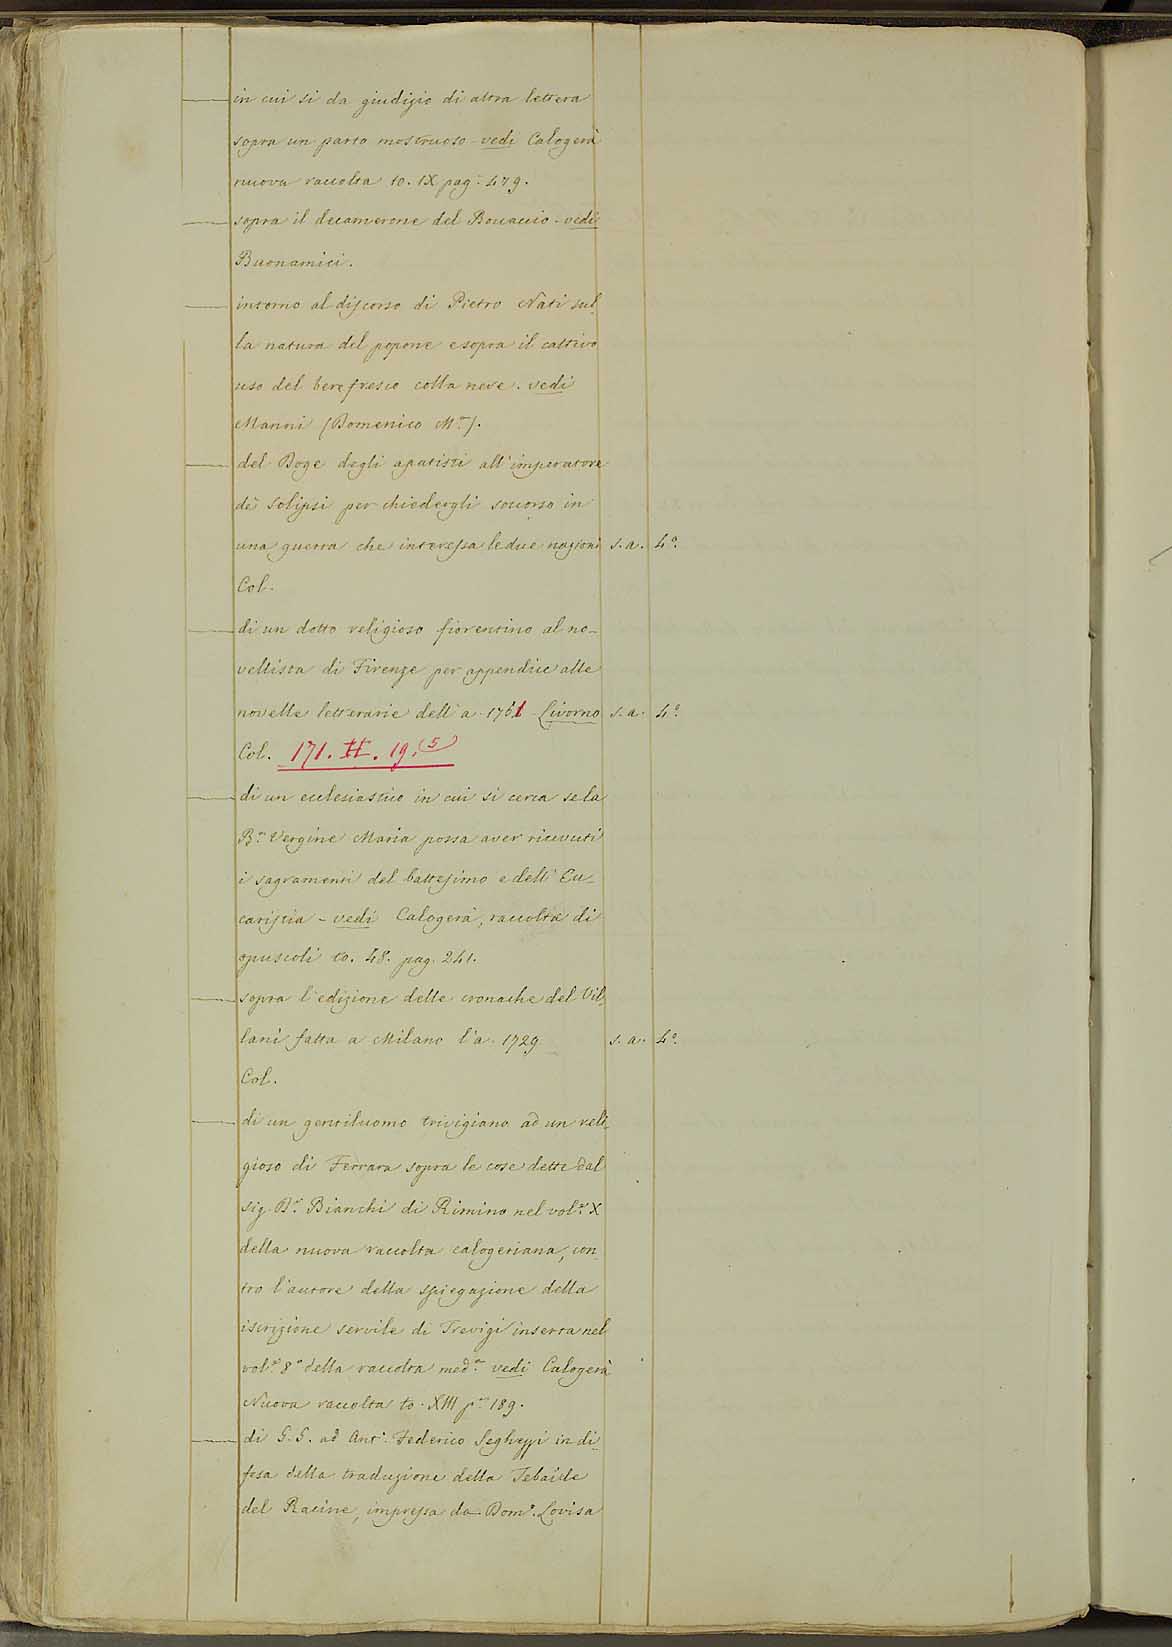 in cui si da giudizio di altra lettera
sopra un parto mostruoso - vedi Calogerà
nuova raccolta to. IX pag. 479.
sopra il decamerone del Bocaccio - vedi
Buonamici.
intorno al discorso di Pietro Nati sul-
la natura del popone e sopra il cattivo
uso del bere fresco colla neve. vedi
Manni (Domenico Mª).
del Doge degli apatisti all'imperatore
de' solipsi per chiedergli soccorso in
una guerra che interessa le due nazioni s.a. 4º.
Col.
di un dotto religioso fiorentino al no-
vellista di Firenze per appendice alle
novelle letterarie dell'a. 1761 - Livorno s.a. 4º.
Col. 171. II. 19. (5)
di un ecclesiastico in cui si cerca se la
Bª. Vergine Maria possa aver ricevuti
i sagramenti del battesimo e dell'Eu-
caristia - vedi Calogerà, raccolta di
opuscoli to. 48. pag. 241.
sopra l'edizione delle cronache del Vil-
lani fatta a Milano l'a. 1729. s.a. 4º.
Col.
di un gentiluomo trivigiano ad un reli-
gioso di Ferrara sopra le cose dette dal
sig. Dr. Bianchi di Rimino nel vol.e X
della nuova raccolta calogeriana, con-
tro l'autore della spiegazione della
iscrizione servile di Trevigi inserta nel
vol.e 8º della raccolta med.a vedi Calogerà
Nuova raccolta to. XIII p. 189.
di G. G. ad Antº. Federico Seghezzi in di-
fesa della traduzione della Tebaide
del Racine, impressa da Domº. Lovisa